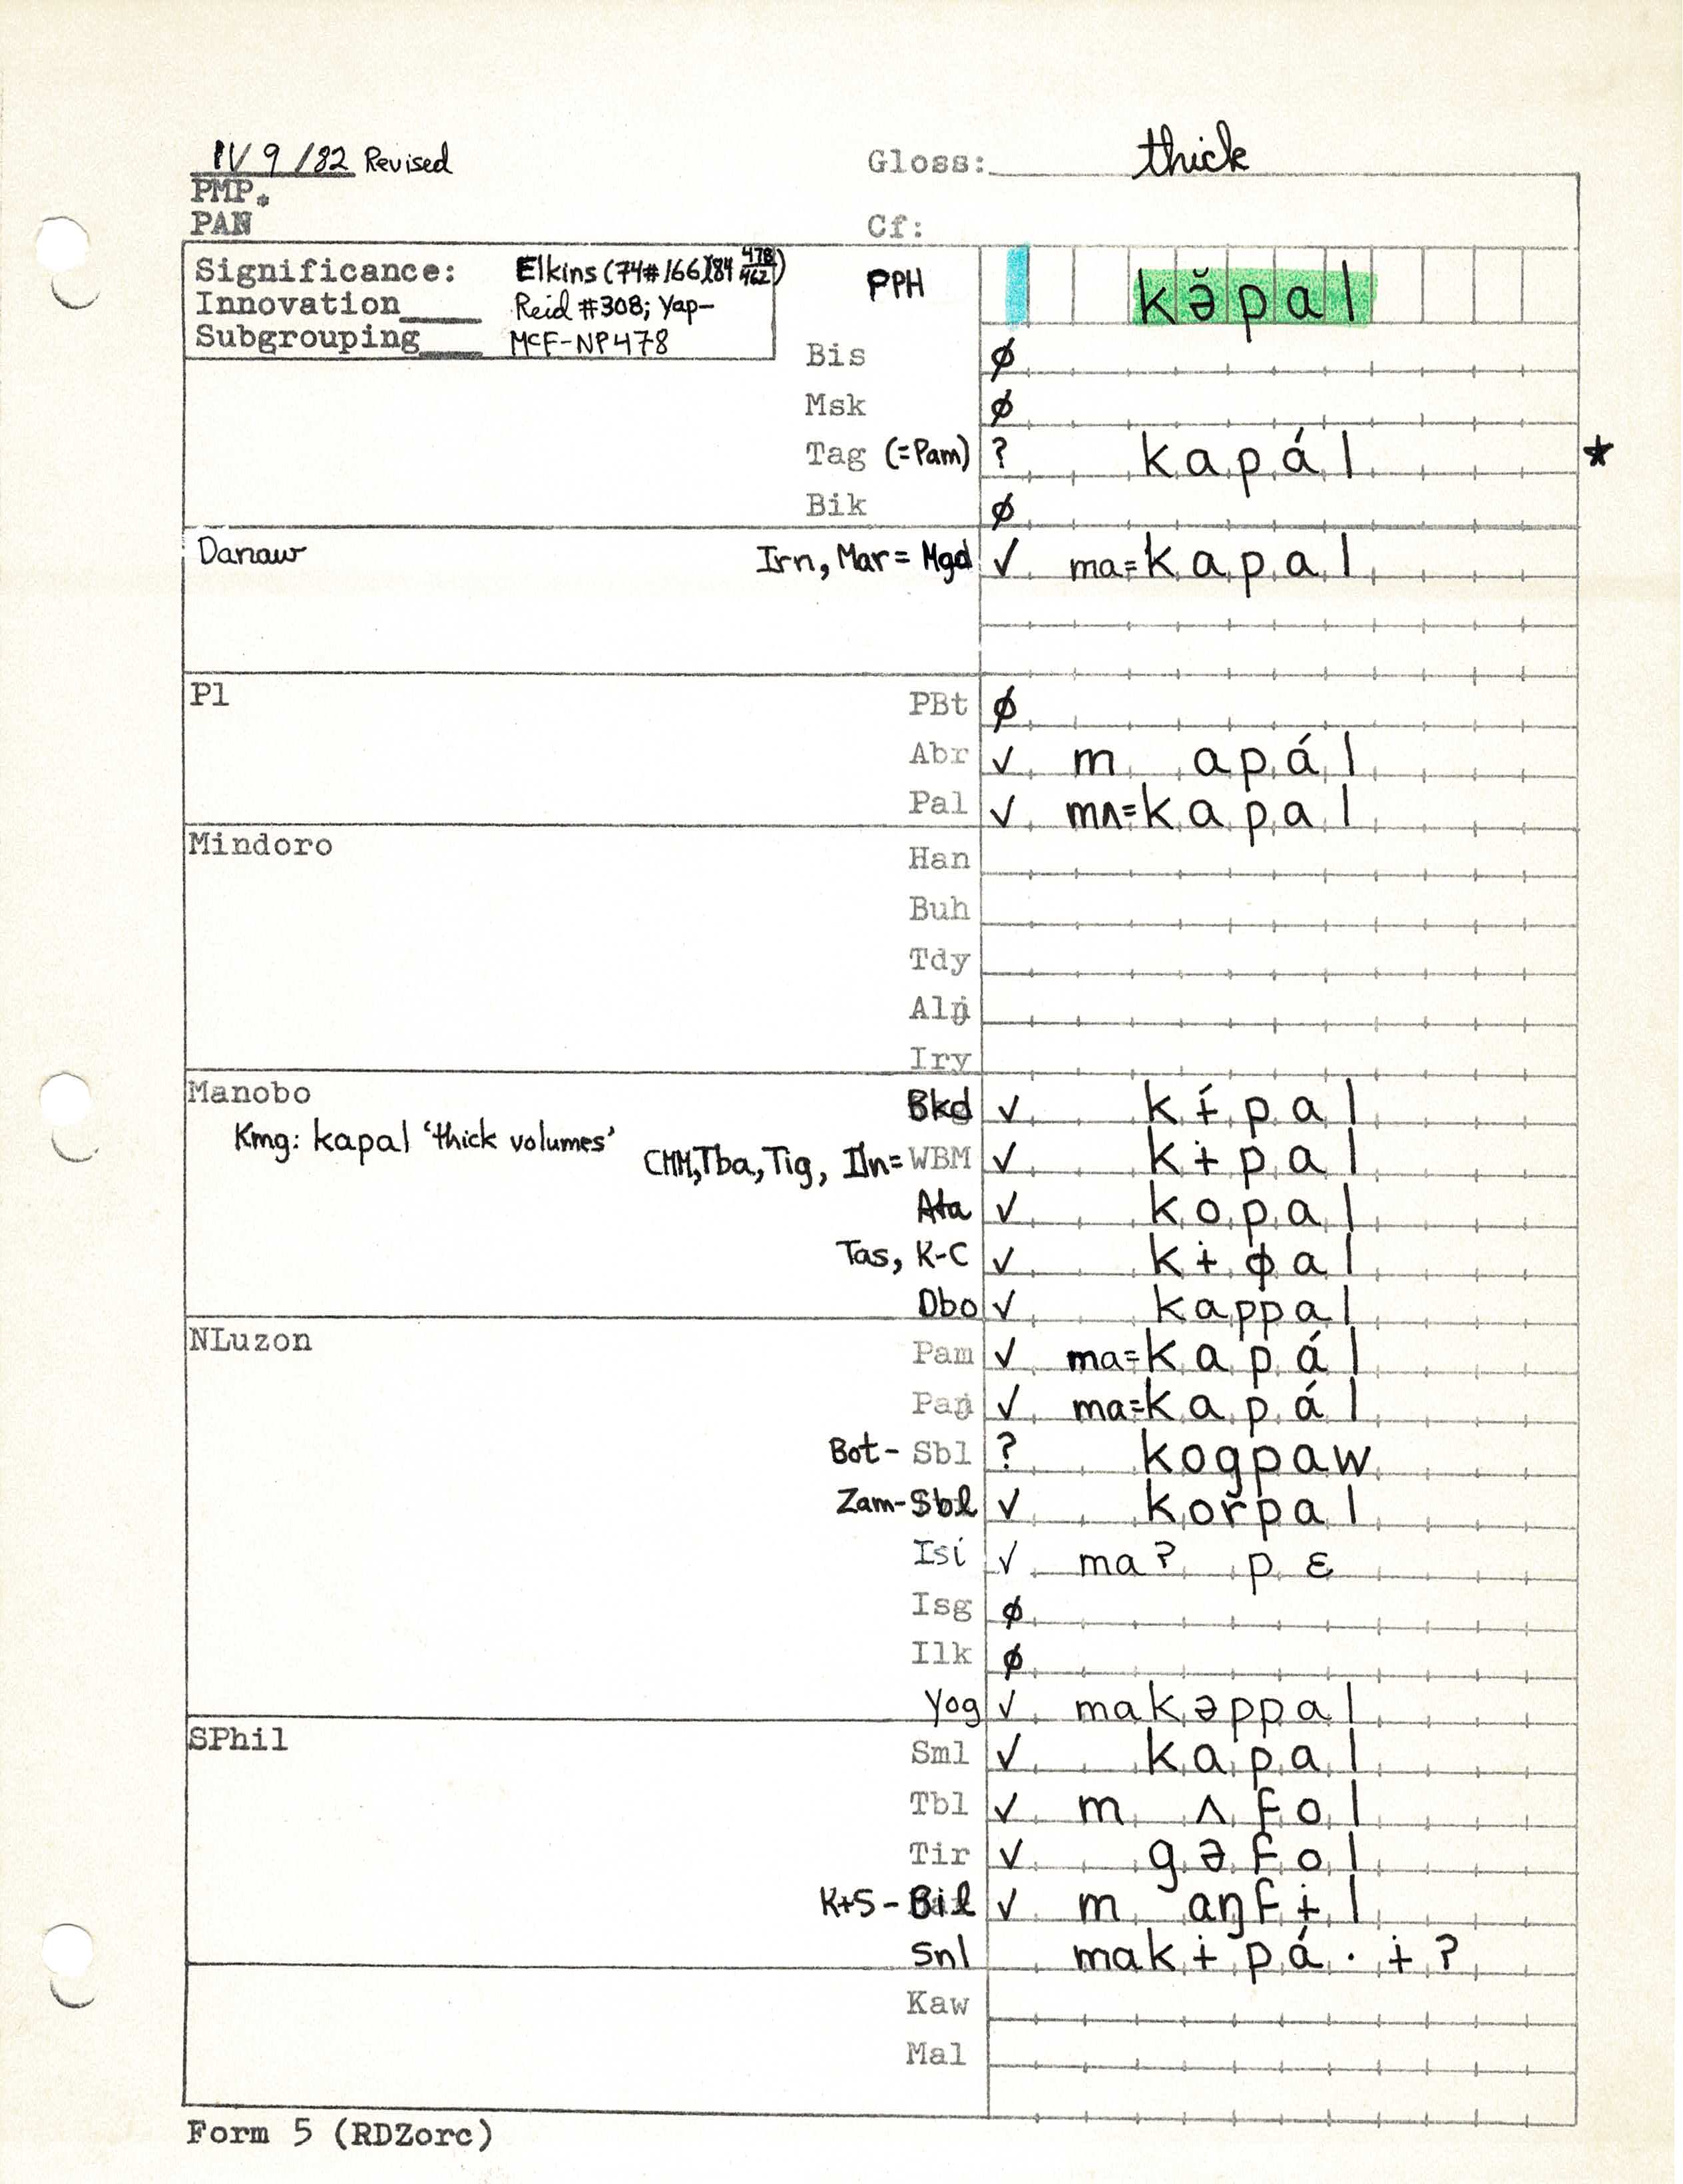 IV 9/82 Revised Gloss: thick
PMP.
PAN Cf:
Significance: Elkins (74#166)(84 478/462) PPH kə̆pal
Innovation____ Reid #308; Yap-
Subgrouping____ McF-NP478
Bis ∅
Msk ∅
Tag (=Pam) ? kapál ★
Bik ∅
Danaw Irn, Mar = Mgd ✓ ma=kapal
Pl PBt ∅
Abr ✓ m apál
Pal ✓ mʌ=kapal
Mindoro Han
Buh
Tdy
Alŋ
Iry
Manobo Bkd ✓ kɨ́pal
Kmg: kapal ‘thick volumes’ CMM,Tba,Tig, Iln= WBM ✓ kɨpal
Ata ✓ kopal
Tas, K-C ✓ kɨɸal
Dbo ✓ kappal
NLuzon Pam ✓ ma=kapál
Paŋ ✓ ma=kapál
Bot- Sbl ? kogpaw
Zam-Sbl ✓ kor̆pal
Isi ✓ maʔ pɛ
Isg ∅
Ilk ∅
Yog ✓ makəppal
SPhil Sml ✓ kapal
Tbl ✓ m ʌfol
Tir ✓ gəfol
K+S - Bil ✓ m aŋfɨl
Snl makɨpá·ɨʔ
Kaw
Mal
Form 5 (RDZorc)